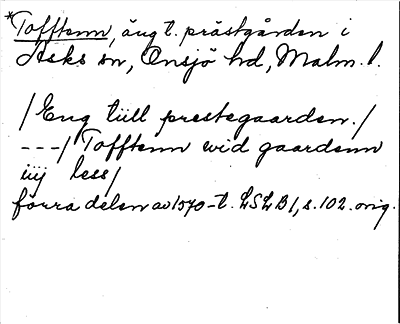 *Tofftenn, äng t. prästgården i
Asks sn, Onsjö hd, Malm. l.
/Eng tiill prestegaarden./
---/Tofftenn wid gaardenn
iiij less/
förra delen av 1570-t. LSLB1, s. 102. orig.